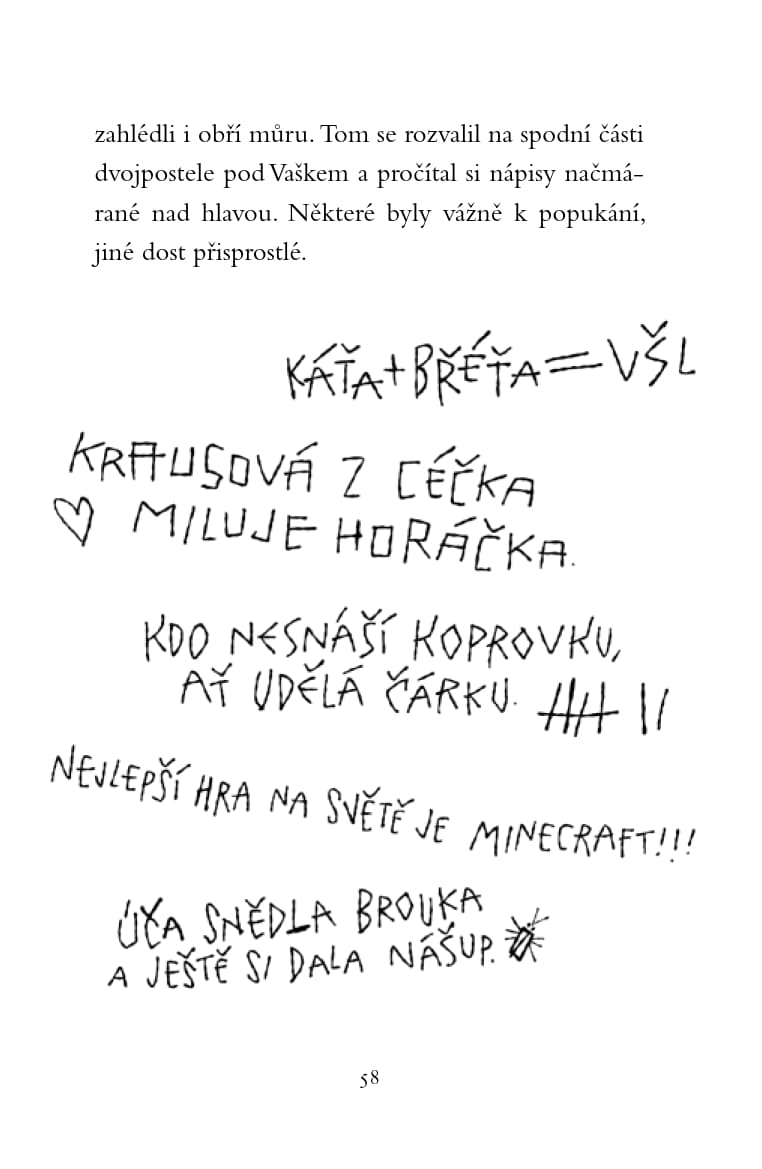 zahlédli i obří můru. Tom se rozvalil na spodní části
dvojpostele pod Vaškem a pročítal si nápisy načmá-
rané nad hlavou. Některé byly vážně k popukání,
jiné dost přisprostlé.
KÁŤA+BŘÉŤA=VŠL
KRAUSOVÁ Z CÉČKA
MILUJE HORÁČKA.
KDO NESNÁŠÍ KOPROVKU,
AŤ UDĚLÁ ČÁRKU.
NEJLEPŠÍ HRA NA SVĚTĚ JE MINECRAFT!!!
ÚČA SNĚDLA BROUKA
A JEŠTĚ SI DALA NÁŠUP.
58